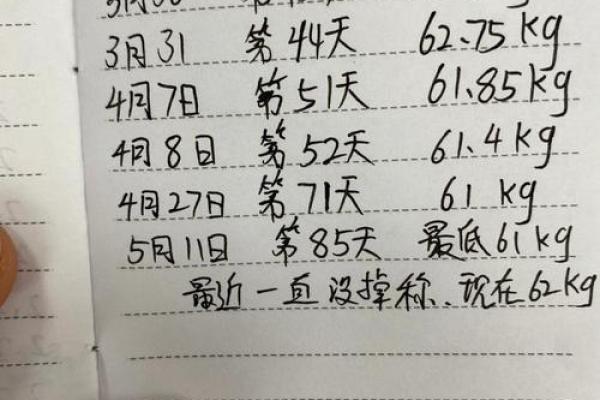 3月31 第44天 62.75kg
4月7日 第51天 61.85kg
4月8日 第52天 61.4kg
4月27日 第71天 61 kg
5月11日 第85天 最低61kg
最近一直没掉称、现在62kg